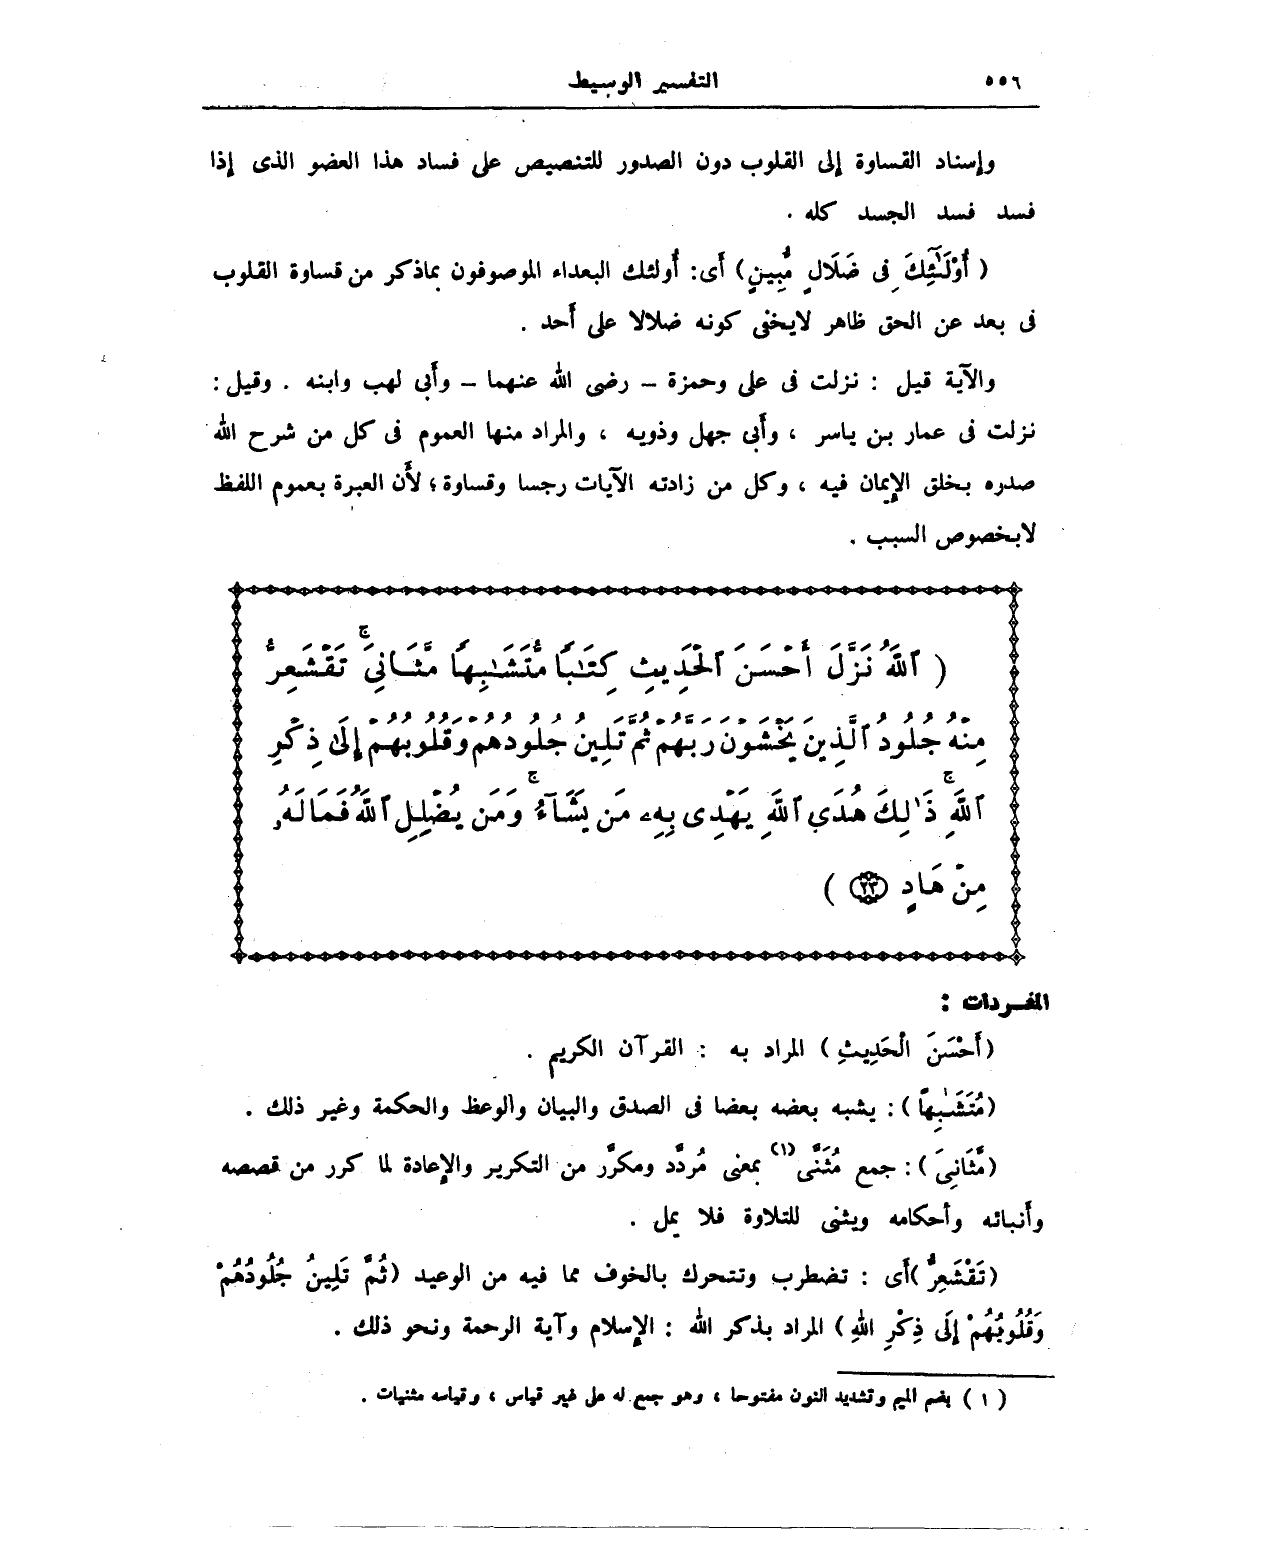 ٥٥٦
التفسير الوسيط
وإسناد القساوة إلى القلوب دون الصدور للتنصيص على فساد هذا العضو الذى إذا
فسد فسد الجسد كله .
( أُوْلَـٰٓئِكَ فِى ضَلَالٍ مُّبِينٍ ) أَى: أُولئك البعداء الموصوفون بماذكر من قساوة القلوب
فى بعد عن الحق ظاهر لايخفى كونه ضلالا على أَحد .
والآية قيل : نزلت فى على وحمزة – رضى الله عنهما – وأَبى لهب وابنه . وقيل :
نزلت فى عمار بن ياسر ، وأَبى جهل وذويه ، والمراد منها العموم فى كل من شرح الله
صدره بخلق الإِيمان فيه ، وكل من زادته الآيات رجسا وقساوة ؛ لأَن العبرة بعموم اللفظ
لابخصوص السبب .
( ٱللَّهُ نَزَّلَ أَحْسَنَ ٱلْحَدِيثِ كِتَـٰبًا مُّتَشَـٰبِهًا مَّثَانِىَ ۚ تَقْشَعِرُّ
مِنْهُ جُلُودُ ٱلَّذِينَ يَخْشَوْنَ رَبَّهُمْ ثُمَّ تَلِينُ جُلُودُهُمْ وَقُلُوبُهُمْ إِلَىٰ ذِكْرِ
ٱللَّهِ ۚ ذَٰلِكَ هُدَى ٱللَّهِ يَهْدِى بِهِۦ مَن يَشَآءُ ۚ وَمَن يُضْلِلِ ٱللَّهُ فَمَا لَهُۥ
مِنْ هَادٍ ٢٣ )
المفـردات :
(أَحْسَنَ الْحَدِيثِ ) المراد به : القرآن الكريم .
(مُتَشَـٰبِهًا ) : يشبه بعضه بعضا فى الصدق والبيان والوعظ والحكمة وغير ذلك .
(مَّثَانِىَ ) : جمع مُثَنًّى (١) بمعنى مُردَّد ومكرَّر من التكرير والإِعادة لما كرر من قصصه
وأَنبائه وأَحكامه ويثنى للتلاوة فلا يمل .
(تَقْشَعِرُّ )أَى : تضطرب وتتحرك بالخوف مما فيه من الوعيد (ثُمَّ تَلِينُ جُلُودُهُمْ
وَقُلُوبُهُمْ إِلَى ذِكْرِ اللهِ ) المراد بذكر الله : الإِسلام وآية الرحمة ونحو ذلك .
( ١ ) بضم الميم وتشديد النون مفتوحا ، وهو جمع له على غير قياس ، وقياسه مثنيات .